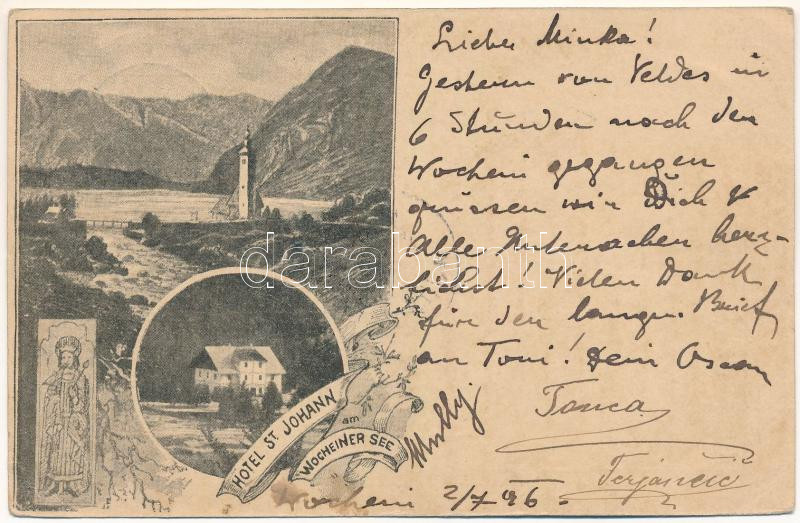 HOTEL ST JOHANN
am
WOCHEINER SEE
Lieber Minka!
Gestern von Veldes in
6 Stunden nach den
Wochein gegangen
grüssen wir Dich &
Alle herz-
lichst! Vielen Dank
für den langen Brief
an Toni! Dein Oscar
Tonca
Wochein 2/7 96.
darabanth.com